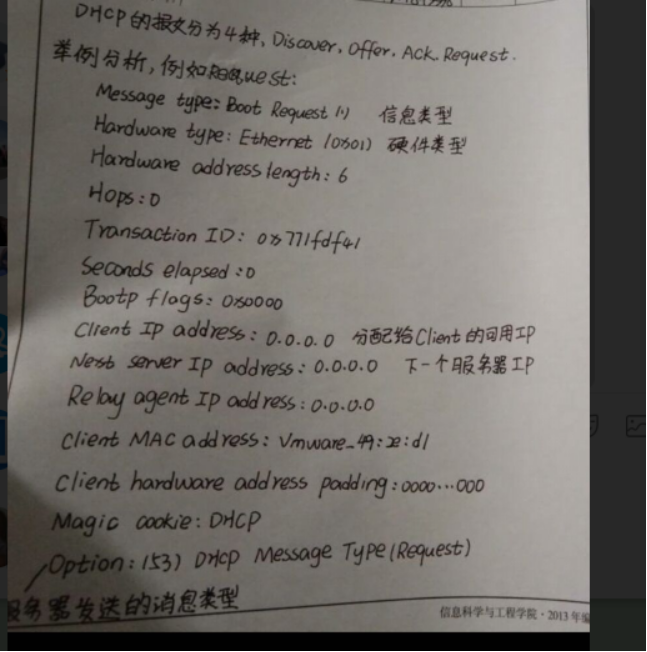 DHCP的报文分为4种、Discover、Offer、Ack、Request.
举例分析,例如Request:
Message type: Boot Request (1) 信息类型
Hardware type: Ethernet (0x01) 硬件类型
Hardware address length: 6
Hops: 0
Transaction ID: 0x771fdf41
Seconds elapsed: 0
Bootp flags: 0x0000
Client IP address: 0.0.0.0 分配给Client的可用IP
Next server IP address: 0.0.0.0 下一个服务器IP
Relay agent IP address: 0.0.0.0
Client MAC address: Vmware_49: :d1
Client hardware address padding: 0000…000
Magic cookie: DHCP
Option: (53) DHCP Message Type (Request)
服务器发送的消息类型
信息科学与工程学院·2013年编